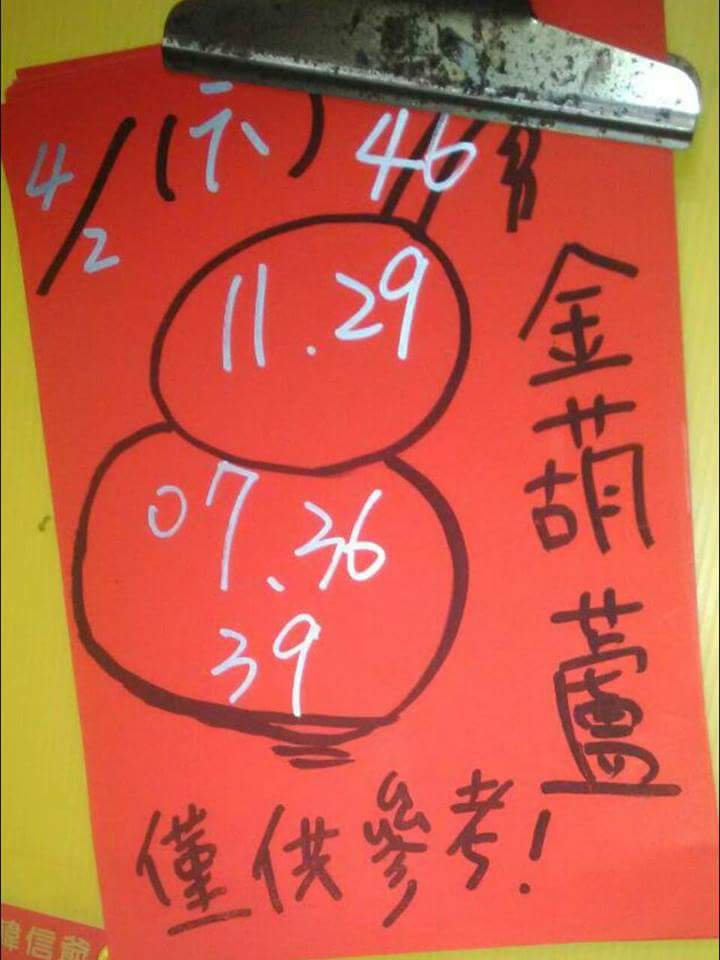 4/2 (六) 46
11.29
07.36
39
金葫蘆
僅供參考!
信爺